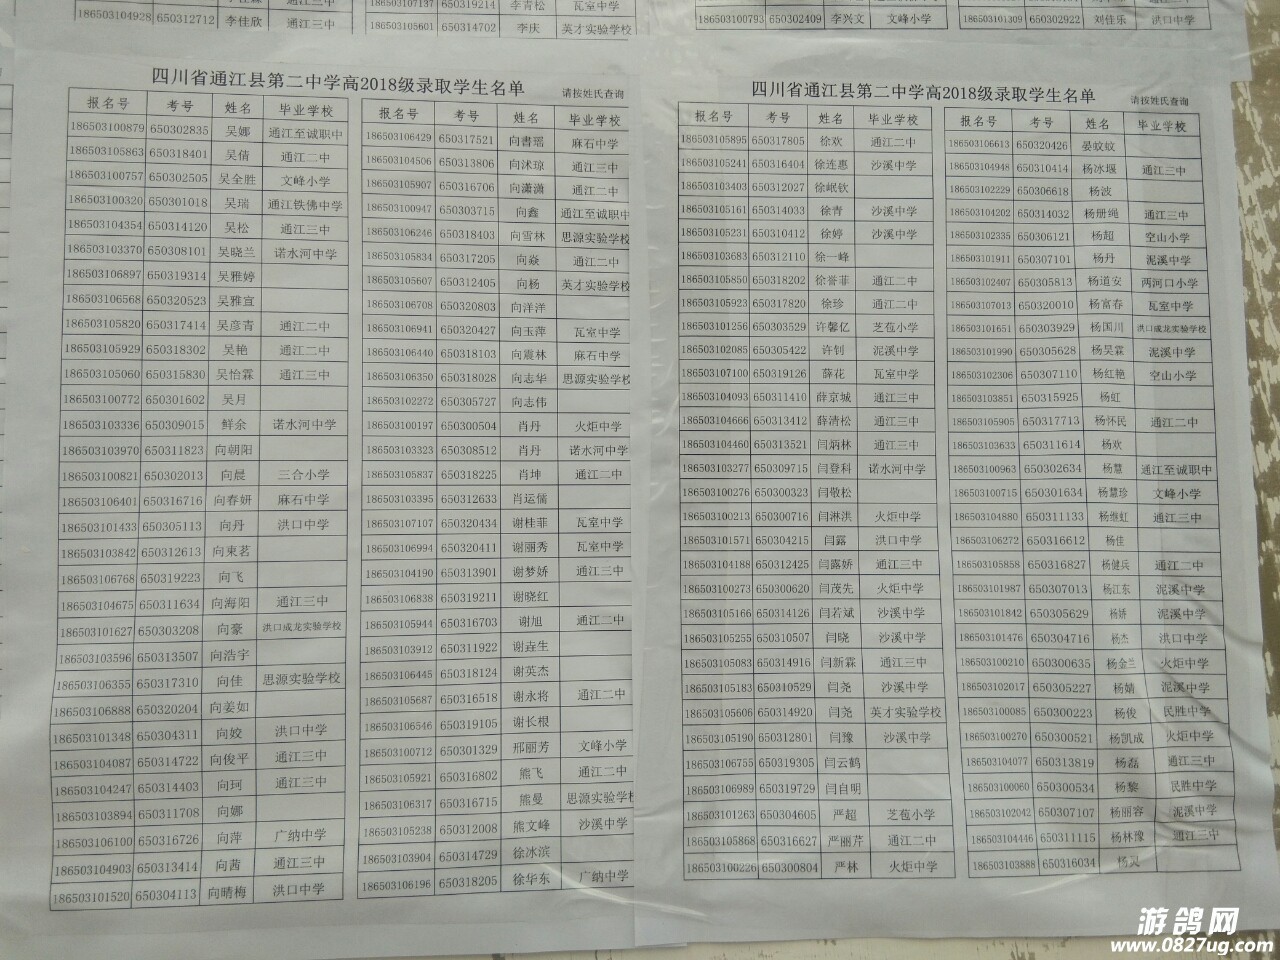 186503104928 650312712 李佳欣 通江三中
186503105601 650314702 李庆 英才实验学校
186503100793 650302409 李兴文 文峰小学
186503101309 650302922 刘佳乐 洪口中学
四川省通江县第二中学高2018级录取学生名单
请按姓氏查询
报名号 考号 姓名 毕业学校
186503100879 650302835 吴娜 通江至诚职中
186503105863 650318401 吴倩 通江二中
186503100757 650302505 吴全胜 文峰小学
186503100320 650301018 吴瑞 通江铁佛中学
186503104354 650314120 吴松 通江三中
186503103370 650308101 吴晓兰 诺水河中学
186503106897 650319314 吴雅婷
186503106568 650320523 吴雅宣
186503105820 650317414 吴彦青 通江二中
186503105929 650318302 吴艳 通江二中
186503105060 650315830 吴怡霖 通江三中
186503100772 650301602 吴月
186503103336 650309015 鲜余 诺水河中学
186503103970 650311823 向朝阳
186503100821 650302013 向晨 三合小学
186503106401 650316716 向春妍 麻石中学
186503101433 650305113 向丹 洪口中学
186503103842 650312613 向東茗
186503106768 650319223 向飞
186503104675 650311634 向海阳 通江三中
186503101627 650303208 向豪 洪口成龙实验学校
186503103596 650313507 向浩宇
186503106355 650317310 向佳 思源实验学校
186503106888 650320204 向姜如
186503101348 650304311 向姣 洪口中学
186503104087 650314722 向俊平 通江三中
186503104247 650314403 向珂 通江三中
186503103894 650311708 向娜
186503106100 650316726 向萍 广纳中学
186503104903 650313414 向茜 通江三中
186503101520 650304113 向晴梅 洪口中学
报名号 考号 姓名 毕业学校
186503106429 650317521 向書瑶 麻石中学
186503104506 650313806 向沭琼 通江三中
186503105907 650316706 向潇潇 通江二中
186503100947 650303715 向鑫 通江至诚职中
186503106246 650318403 向雪林 思源实验学校
186503105834 650317205 向焱 通江二中
186503105607 650312405 向杨 英才实验学校
186503106708 650320803 向洋洋
186503106941 650320427 向玉萍 瓦室中学
186503106440 650318103 向震林 麻石中学
186503106350 650318028 向志华 思源实验学校
186503102272 650305727 向志伟
186503100197 650300504 肖丹 火炬中学
186503103323 650308512 肖丹 诺水河中学
186503105837 650318225 肖坤 通江二中
186503103395 650312633 肖运儒
186503107107 650320434 谢桂菲 瓦室中学
186503106994 650320411 谢丽秀 瓦室中学
186503104190 650313901 谢梦娇 通江三中
186503106838 650319211 谢晓红
186503105944 650316703 谢旭 通江二中
186503103912 650311922 谢垚生
186503106445 650318124 谢英杰
186503105687 650316518 谢永将 通江二中
186503106546 650319105 谢长根
186503100712 650301329 邢丽芳 文峰小学
186503105921 650316802 熊飞 通江二中
186503106317 650316715 熊曼 思源实验学校
186503105238 650312008 熊文峰 沙溪中学
186503103904 650314729 徐冰滨
186503106196 650318205 徐华东 广纳中学
四川省通江县第二中学高2018级录取学生名单
请按姓氏查询
报名号 考号 姓名 毕业学校
186503105895 650317805 徐欢 通江二中
186503105241 650316404 徐连惠 沙溪中学
186503103403 650312027 徐岷钦
186503105161 650314033 徐青 沙溪中学
186503105231 650310412 徐婷 沙溪中学
186503103683 650312110 徐一峰
186503105850 650318202 徐誉菲 通江二中
186503105923 650317820 徐珍 通江二中
186503101256 650303529 许馨亿 芝苞小学
186503102085 650305422 许钊 泥溪中学
186503107100 650319126 薛花 瓦室中学
186503104093 650311410 薛京城 通江三中
186503104666 650313412 薛清松 通江三中
186503104460 650313521 闫炳林 通江三中
186503103277 650309715 闫登科 诺水河中学
186503100276 650300323 闫敬松
186503100213 650300716 闫淋洪 火炬中学
186503101571 650304215 闫露 洪口中学
186503104188 650312425 闫露娇 通江三中
186503100273 650300620 闫茂先 火炬中学
186503105166 650314126 闫若斌 沙溪中学
186503105255 650310507 闫晓 沙溪中学
186503105083 650314916 闫新霖 通江三中
186503105183 650310529 闫尧 沙溪中学
186503105606 650314920 闫尧 英才实验学校
186503105190 650312801 闫豫 沙溪中学
186503106755 650319305 闫云鹤
186503106989 650319729 闫自明
186503101263 650304605 严超 芝苞小学
186503105868 650316627 严丽芹 通江二中
186503100226 650300804 严林 火炬中学
报名号 考号 姓名 毕业学校
186503106613 650320426 晏蚊蚊
186503104948 650310414 杨冰堰 通江三中
186503102229 650306618 杨波
186503104202 650314032 杨册绳 通江三中
186503102335 650306121 杨超 空山小学
186503101911 650307101 杨丹 泥溪中学
186503102407 650305813 杨道安 两河口小学
186503107013 650320010 杨富春 瓦室中学
186503101651 650303929 杨国川 洪口成龙实验学校
186503101990 650305628 杨昊霖 泥溪中学
186503102306 650307110 杨红艳 空山小学
186503103851 650315925 杨虹
186503105905 650317713 杨怀民 通江二中
186503103633 650311614 杨欢
186503100963 650302634 杨慧 通江至诚职中
186503100715 650301634 杨慧珍 文峰小学
186503104880 650311133 杨继虹 通江三中
186503106272 650316612 杨佳
186503105858 650316827 杨健兵 通江二中
186503101987 650307013 杨江东 泥溪中学
186503101842 650305629 杨娇 泥溪中学
186503101476 650304716 杨杰 洪口中学
186503100210 650300635 杨金兰 火炬中学
186503102017 650305227 杨婧 泥溪中学
186503100085 650300223 杨俊 民胜中学
186503100270 650300521 杨凯成 火炬中学
186503104077 650313819 杨磊 通江三中
186503100060 650300534 杨黎 民胜中学
186503102042 650307107 杨丽容 泥溪中学
186503104446 650311115 杨林豫 通江三中
186503103888 650316034 杨灵
游鸽网
www.0827ug.com